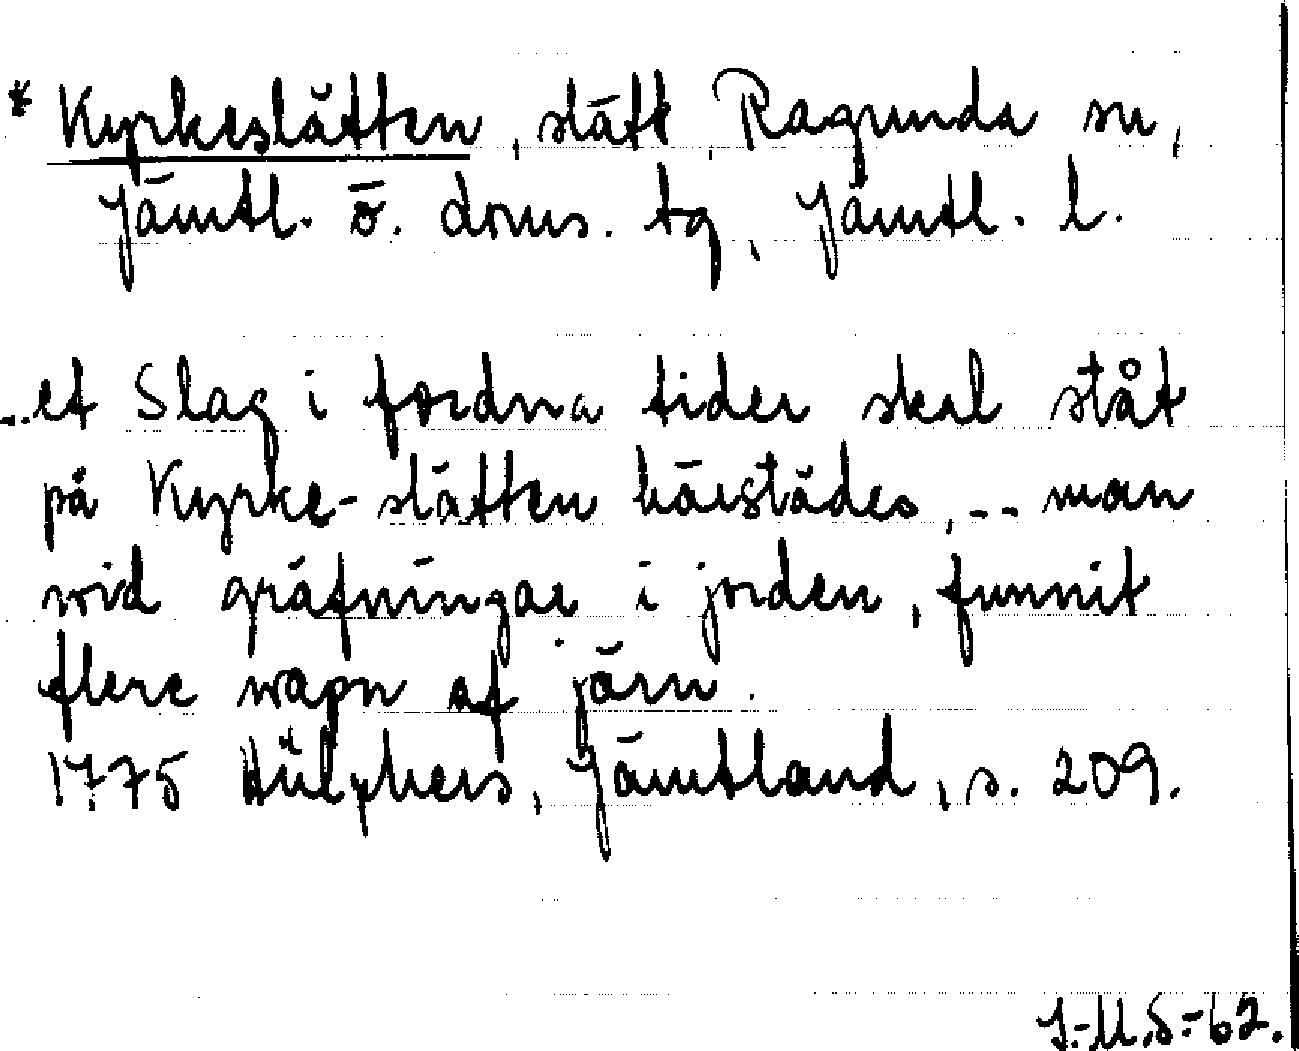 * Kyrkeslätten, slätt, Ragunda sn,
Jämtl. ö. doms. tg, Jämtl. l.
..et Slag i fordna tider skal ståt
på Kyrke-slätten härstädes, -- man
wid gräfningar i jorden, funnit
flere wapn af järn.
1775 Hülphers, Jämtland, s. 209.
J.-M.S.-62.